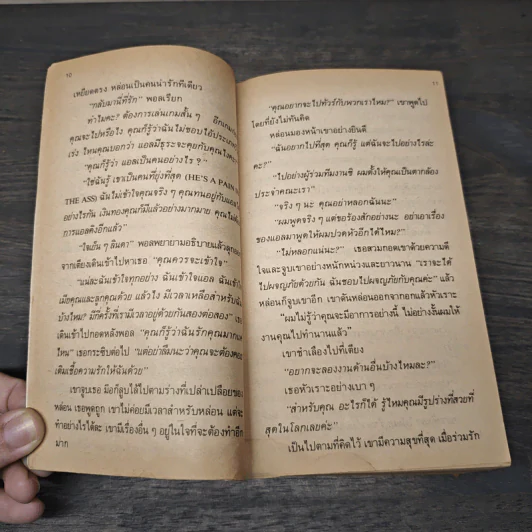 10
เหยียดตรง หล่อนเป็นคนน่ารักทีเดียว
"กลับมานี่ที่รัก" พอลเรียก
ทำไมคะ? ต้องการเล่นเกมสั้น ๆ อีกเกม
คุณจะไปหรือไง คุณก็รู้ว่าฉันไม่ชอบไอ้ประเภท
เร่ง ไหนคุณบอกว่า แอลมีธุระจะคุยกับคุณ
"คุณก็รู้ว่า แอลเป็นคนอย่างไร ?"
"ใช่ฉันรู้ เขาเป็นคนที่ยุ่งที่สุด (HE'S A PAIN
THE ASS) ฉันไม่เข้าใจคุณจริง ๆ คุณทนอยู่กับแอล
อย่างไรกัน เงินทองคุณก็มีแล้วอย่างมากมาย คุณไม่
การแอลดังอีกแล้ว"
"ใจเย็น ๆ ลินดา" พอลพยายามอธิบายแล้วลุก
จากเตียงเดินเข้าไปหาเธอ "คุณควรจะเข้าใจ"
"แน่ละฉันเข้าใจทุกอย่าง ฉันเข้าใจแอล ฉันเข้าใจ
เมียคุณและลูกคุณด้วย แล้วไง มีเวลาเหลือสำหรับฉัน
บ้างไหม? มีกี่ครั้งที่เรามีเวลาอยู่ด้วยกันสองต่อสอง" เธอ
เดินเข้าไปกอดหลังพอล "คุณก็รู้ว่าฉันรักคุณมาก
ไหน" เธอกระซิบต่อไป "แต่อย่าลืมนะว่าคุณจะต้อง
เติมเชื้อความรักให้ฉันด้วย"
เขาจูบเธอ มือก็ลูบไล้ไปตามร่างที่เปล่าเปลือยของ
หล่อน เธอพูดถูก เขาไม่ค่อยมีเวลาสำหรับหล่อน แต่จะ
ทำอย่างไรได้ละ เขามีเรื่องอื่น ๆ อยู่ในใจที่จะต้องทำอีก
มาก
11
"คุณอยากจะไปทัวร์กับพวกเราไหม?" เขาพูดไป
โดยที่ยังไม่ทันคิด
หล่อนมองหน้าเขาอย่างยินดี
"ฉันอยากไปที่สุด คุณก็รู้ แต่ฉันจะไปอย่างไรล่ะ
คะ?"
"ไปอย่างผู้ร่วมทีมงานซิ ผมตั้งให้คุณเป็นตากล้อง
ประจำคณะเรา"
"จริง ๆ นะ คุณอย่าหลอกฉันนะ"
"ผมพูดจริง ๆ แต่ขอร้องสักอย่างนะ อย่าเอาเรื่อง
ของแอลมาพูดให้ผมปวดหัวอีกได้ไหม?"
"ไม่หลอกแน่นะ?" เธอสวมกอดเขาด้วยความดี
ใจและจูบเขาอย่างหนักหน่วงและยาวนาน "เราจะได้
ไปผจญภัยด้วยกัน ฉันชอบไปผจญภัยกับคุณค่ะ" แล้ว
หล่อนก็จูบเขาอีก เขาดันหล่อนออกจากอกแล้วหัวเราะ
"ผมไม่รู้ว่าคุณจะมีอาการอย่างนี้ ไม่อย่างงั้นผมให้
งานคุณไปทำนานแล้ว"
เขาชำเลืองไปที่เตียง
"อยากจะลองงานด้านอื่นบ้างไหมละ?"
เธอหัวเราะอย่างเบา ๆ
"สำหรับคุณ อะไรก็ได้ รู้ไหมคุณมีรูปร่างที่สวยที่
สุดในโลกเลยค่ะ"
เป็นไปตามที่คิดไว้ เขามีความสุขที่สุด เมื่อร่วมรัก